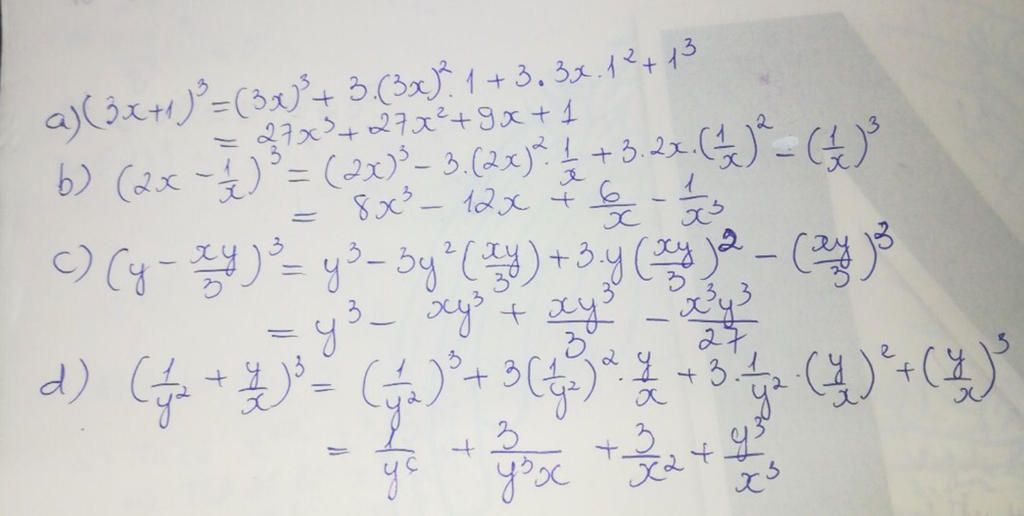 a) (3x+1)³ = (3x)³ + 3.(3x)².1 + 3.3x.1² + 1³
= 27x³ + 27x² + 9x + 1
b) (2x - 1/x)³ = (2x)³ - 3.(2x)².1/x + 3.2x.(1/x)² - (1/x)³
= 8x³ - 12x + 6/x - 1/x³
c) (y - xy/3)³ = y³ - 3y²(xy/3) + 3.y(xy/3)² - (xy/3)³
= y³ - xy³ + xy³/3 - x³y³/27
d) (1/y² + y/x)³ = (1/y²)³ + 3(1/y²)².y/x + 3.1/y².(y/x)² + (y/x)³
= 1/y⁶ + 3/y³x + 3/x² + y³/x³